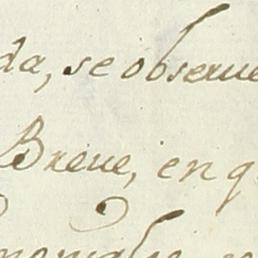 da, se observe
Breve, en q